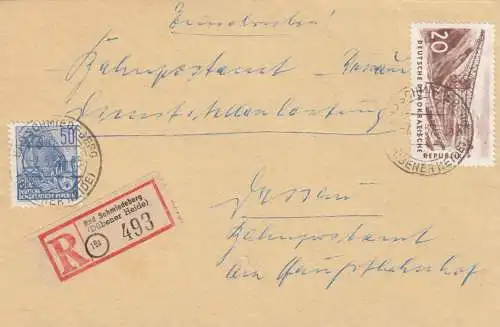 Einschreiben!
Bahnpostamt Dessau
Dienststellenleitung
Dessau
Bahnpostamt
am Hauptbahnhof
20
DEUTSCHE DEMOKRATISCHE
REPUBLIK
50
DEUTSCHE
DEMOKRATISCHE REPUBLIK
SCHMIEDEBERG
R
Bad Schmiedeberg
(Dübener Heide)
(19a)
493